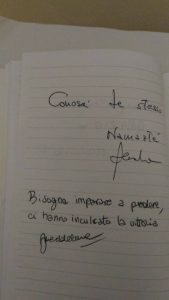 Conosci te stesso
Namastè
Bisogna imparare a perdere,
ci hanno inculcato la vittoria